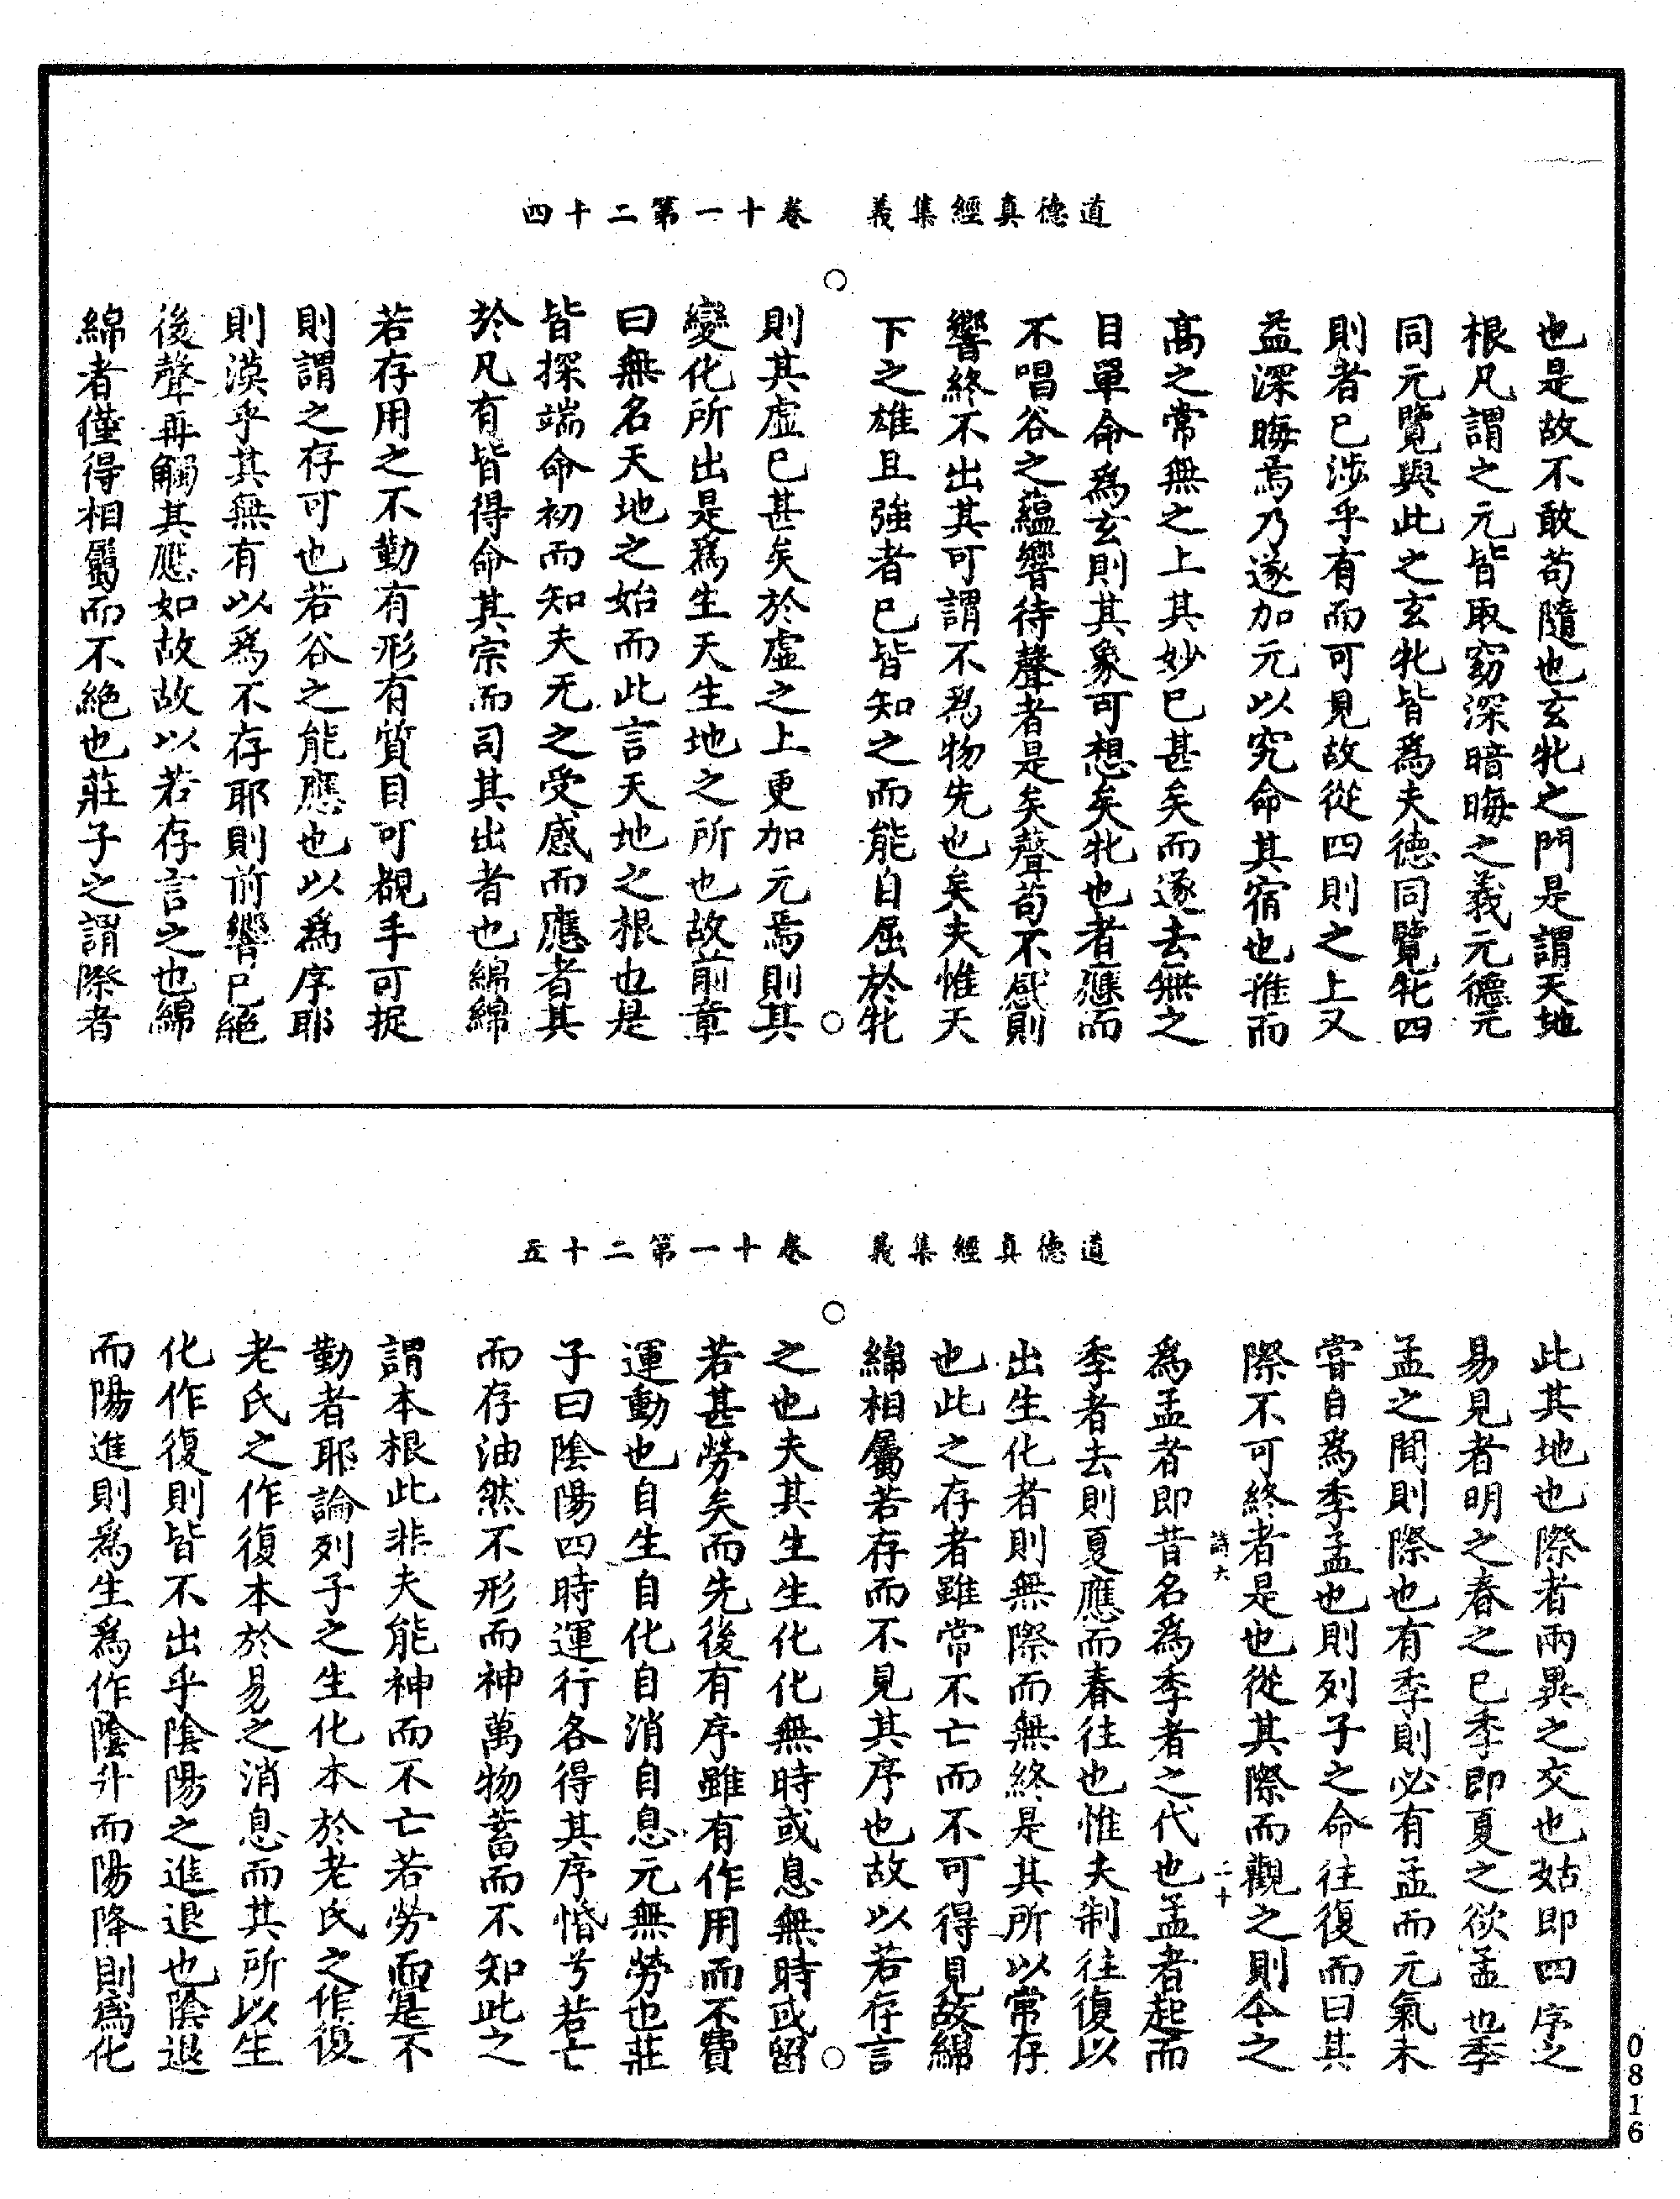 道德真經集義　卷十一第二十四
也是故不敢苟隨也玄牝之門是謂天地
根凡謂之元皆取窈深暗晦之義元德元
同元覽與此之玄牝皆爲夫德同覽牝四
則者已涉乎有而可見故從四則之上又
益深晦焉乃遂加元以究命其宿也推而
高之常無之上其妙已甚矣而遂去無之
目單命爲玄則其象可想矣牝也者應而
不唱谷之蘊響待聲者是矣聲苟不感則
響終不出其可謂不爲物先也矣夫惟天
下之雄且強者已皆知之而能自屈於牝
則其虛已甚矣於虛之上更加元焉則其
變化所出是爲生天生地之所也故前章
曰無名天地之始而此言天地之根也是
皆探端命初而知夫无之受感而應者其
於凡有皆得命其宗而司其出者也綿綿
若存用之不勤有形有質目可覩手可捉
則謂之存可也若谷之能應也以爲序耶
則漠乎其無有以爲不存耶則前響已絕
後聲再觸其應如故故以若存言之也綿
綿者僅得相屬而不絕也莊子之謂際者
道德真經集義　卷十一第二十五
此其地也際者兩異之交也姑即四序之
易見者明之春之已季即夏之欲孟也季
孟之間則際也有季則必有孟而元氣未
嘗自爲季孟也則列子之命往復而曰其
際不可終者是也從其際而觀之則今之
詩大　二十
爲孟者即昔名爲季者之代也孟者起而
季者去則夏應而春往也惟夫制往復以
出生化者則無際而無終是其所以常存
也此之存者雖常不亡而不可得見故綿
綿相屬若存而不見其序也故以若存言
之也夫其生生化化無時或息無時或留
若甚勞矣而先後有序雖有作用而不費
運動也自生自化自消自息元無勞也莊
子曰陰陽四時運行各得其序惛兮若亡
而存油然不形而神萬物蓄而不知此之
謂本根此非夫能神而不亡若勞而是不
勤者耶論列子之生化本於老氏之作復
老氏之作復本於易之消息而其所以生
化作復則皆不出乎陰陽之進退也陰退
而陽進則爲生爲作陰升而陽降則爲化
0816